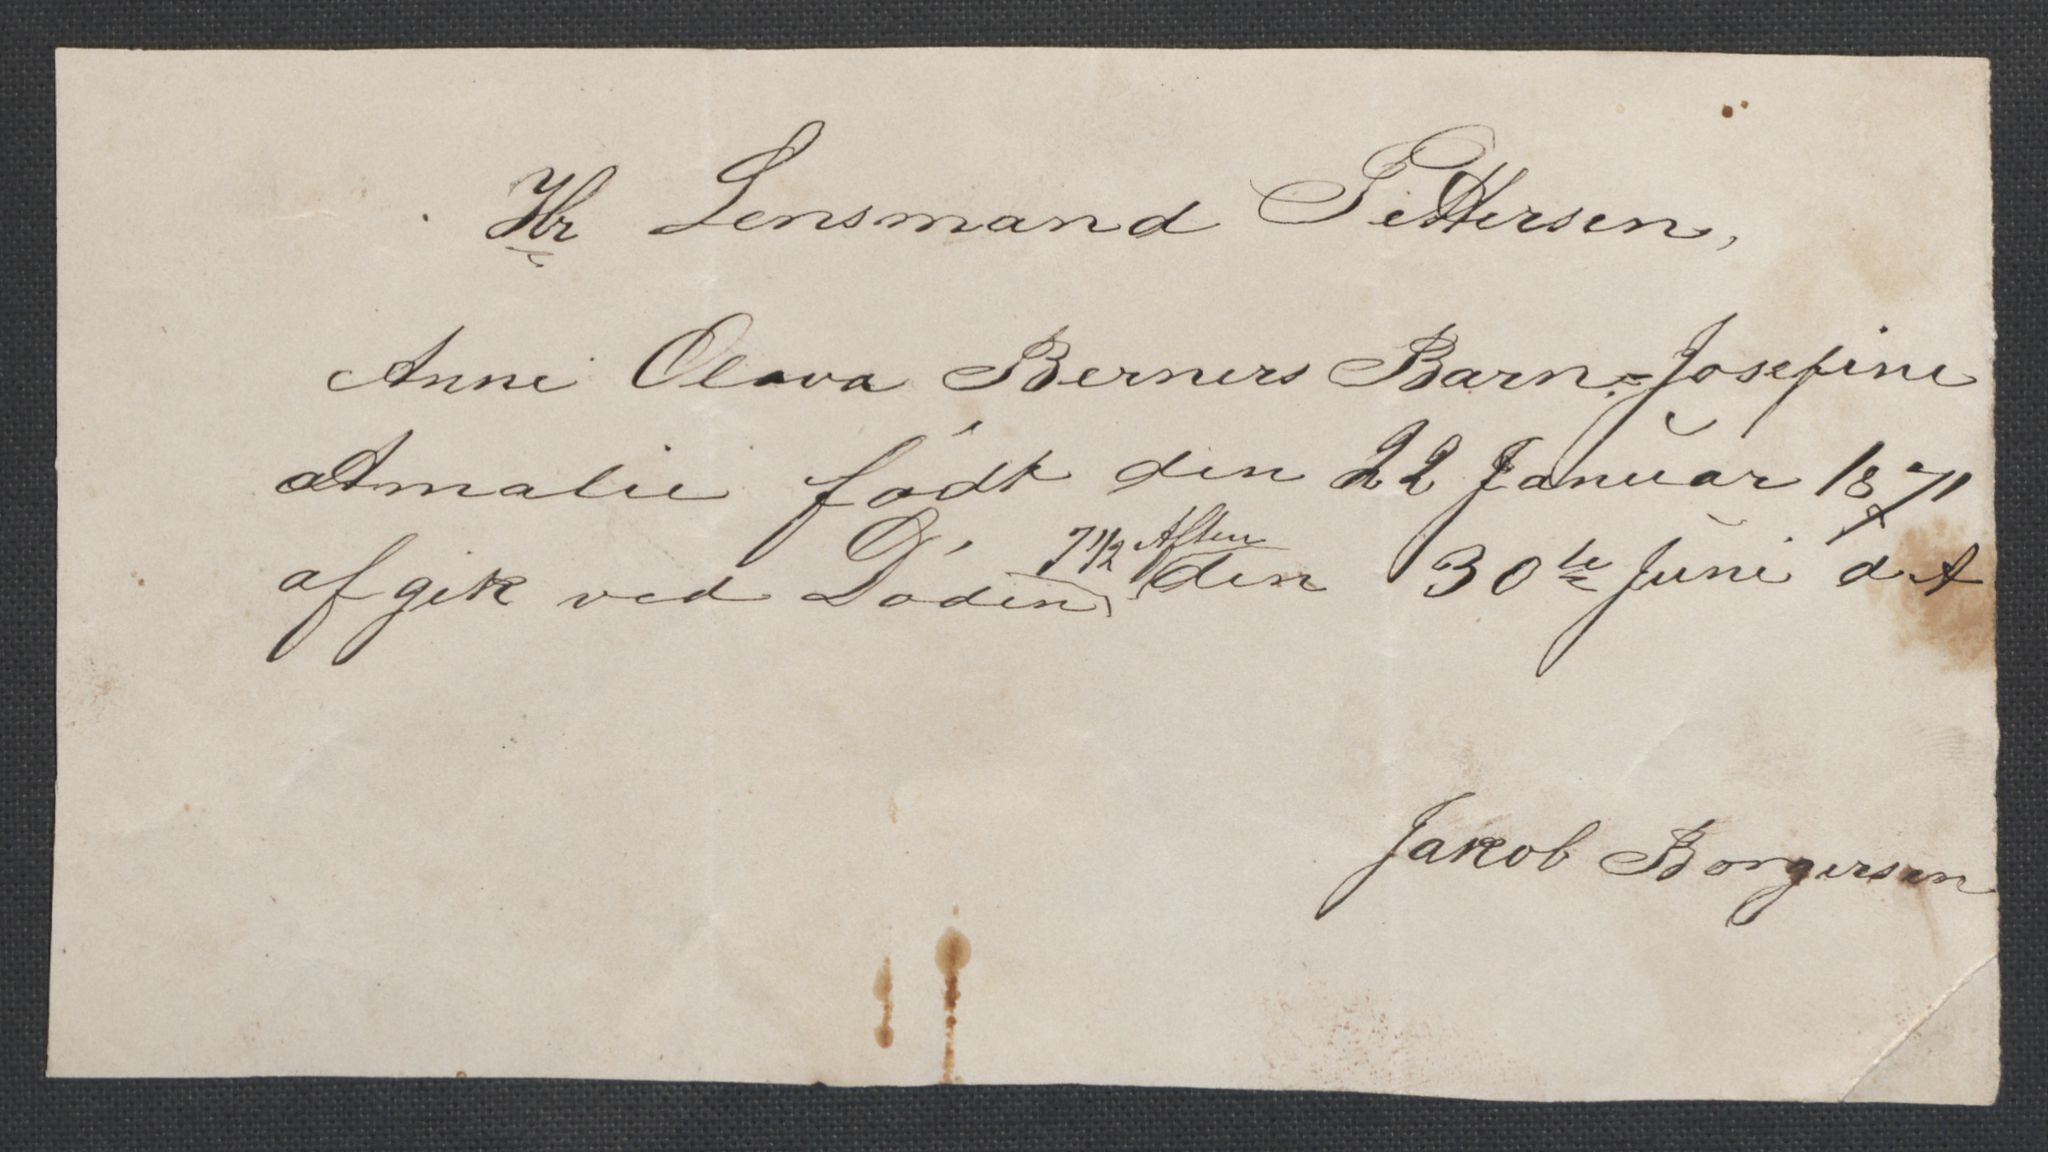 Hr Lensmand Pettersen,
Anne Olava Berners Barn, Josefine
Amalie født den 22 Januar 1871
7 1/2 Aften
afgik ved Døden, den 30te Juni d A
Jakob Borgersen